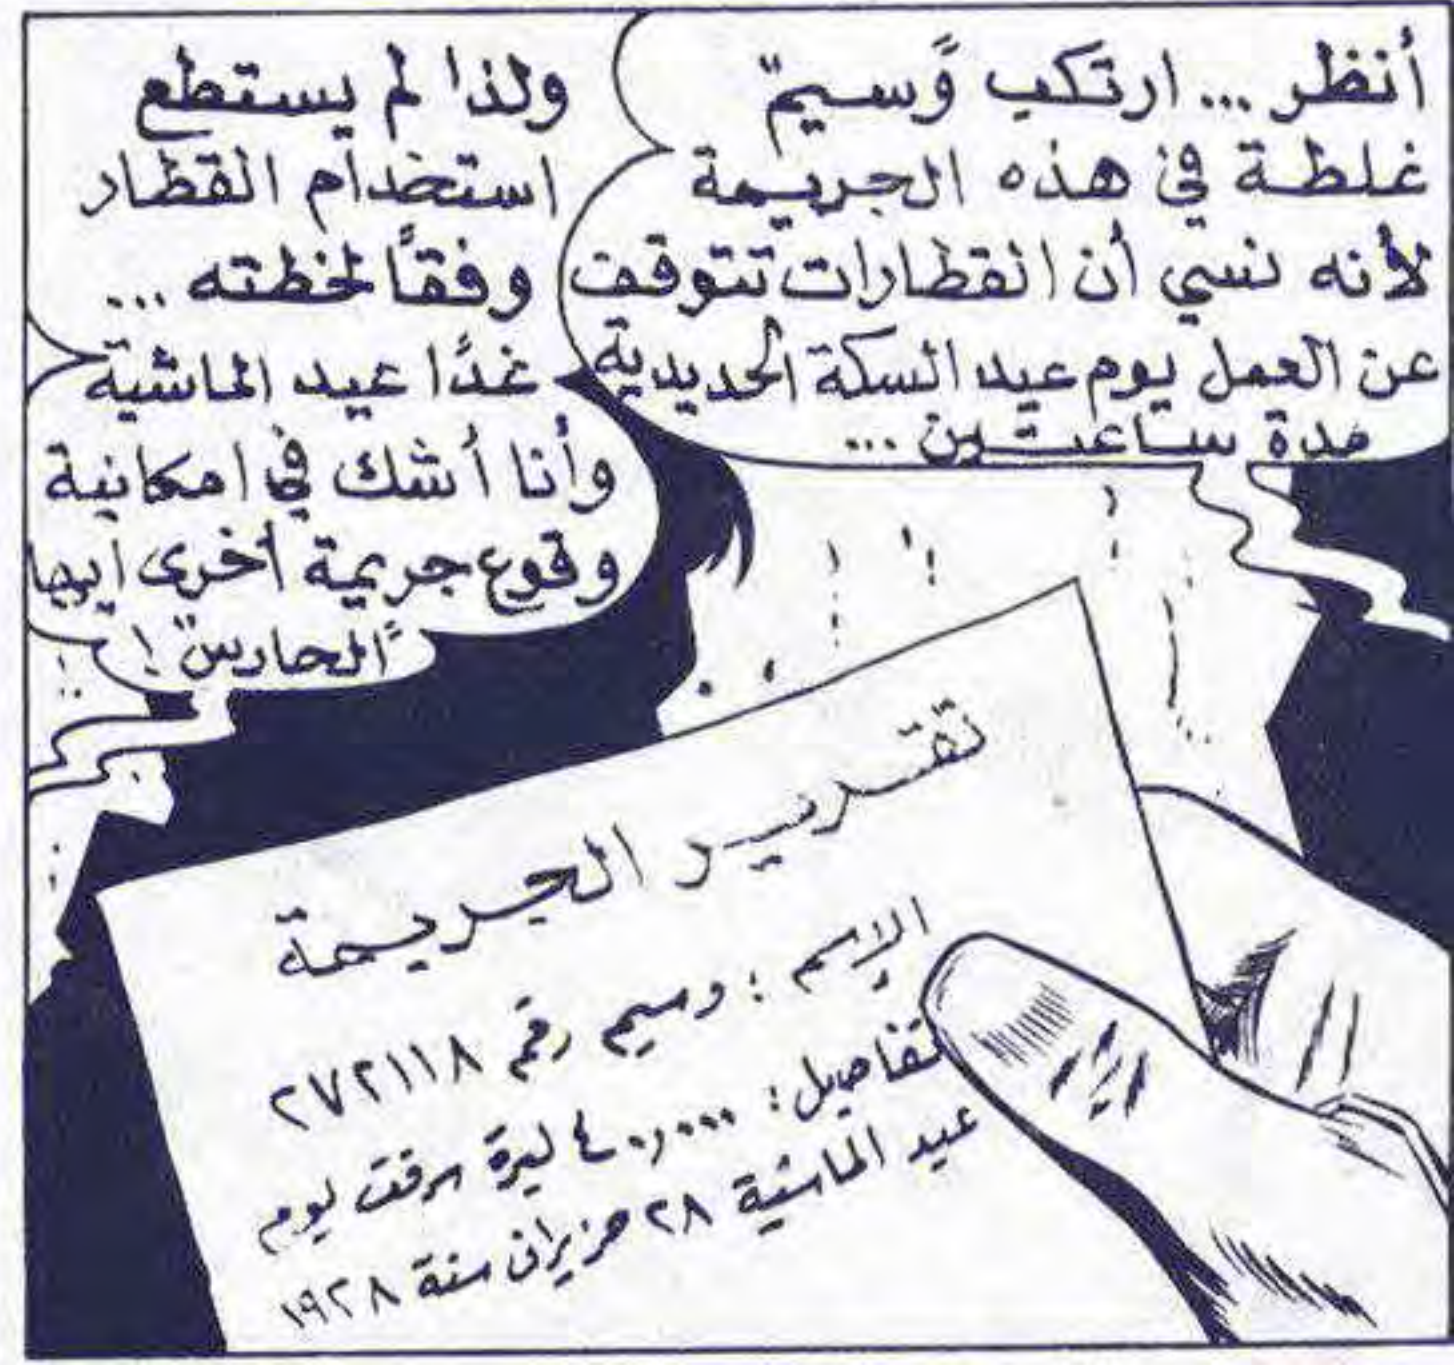 أنظر ... ارتكب وسيم
غلطة في هذه الجريمة
لأنه نسي أن القطارات تتوقف
عن العمل يوم عيد السكة الحديدية
مدة ساعتين ...
ولذا لم يستطع
استخدام القطار
وفقًا لخطته ...
غدًا عيد الماشية
وأنا أشك في امكانية
وقوع جريمة أخرى ايها
"الحارس" !
تقرير الجريمة
الإسم : وسيم رقم ٢٧٢١١٨
تفاصيل : ٤٠,٠٠٠ ليرة سرقت يوم
عيد الماشية ٢٨ حزيران سنة ١٩٢٨